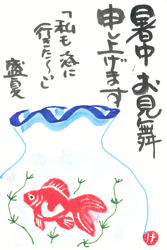 暑中お見舞
申し上げます
「私も海に
行きた〜い」
盛夏